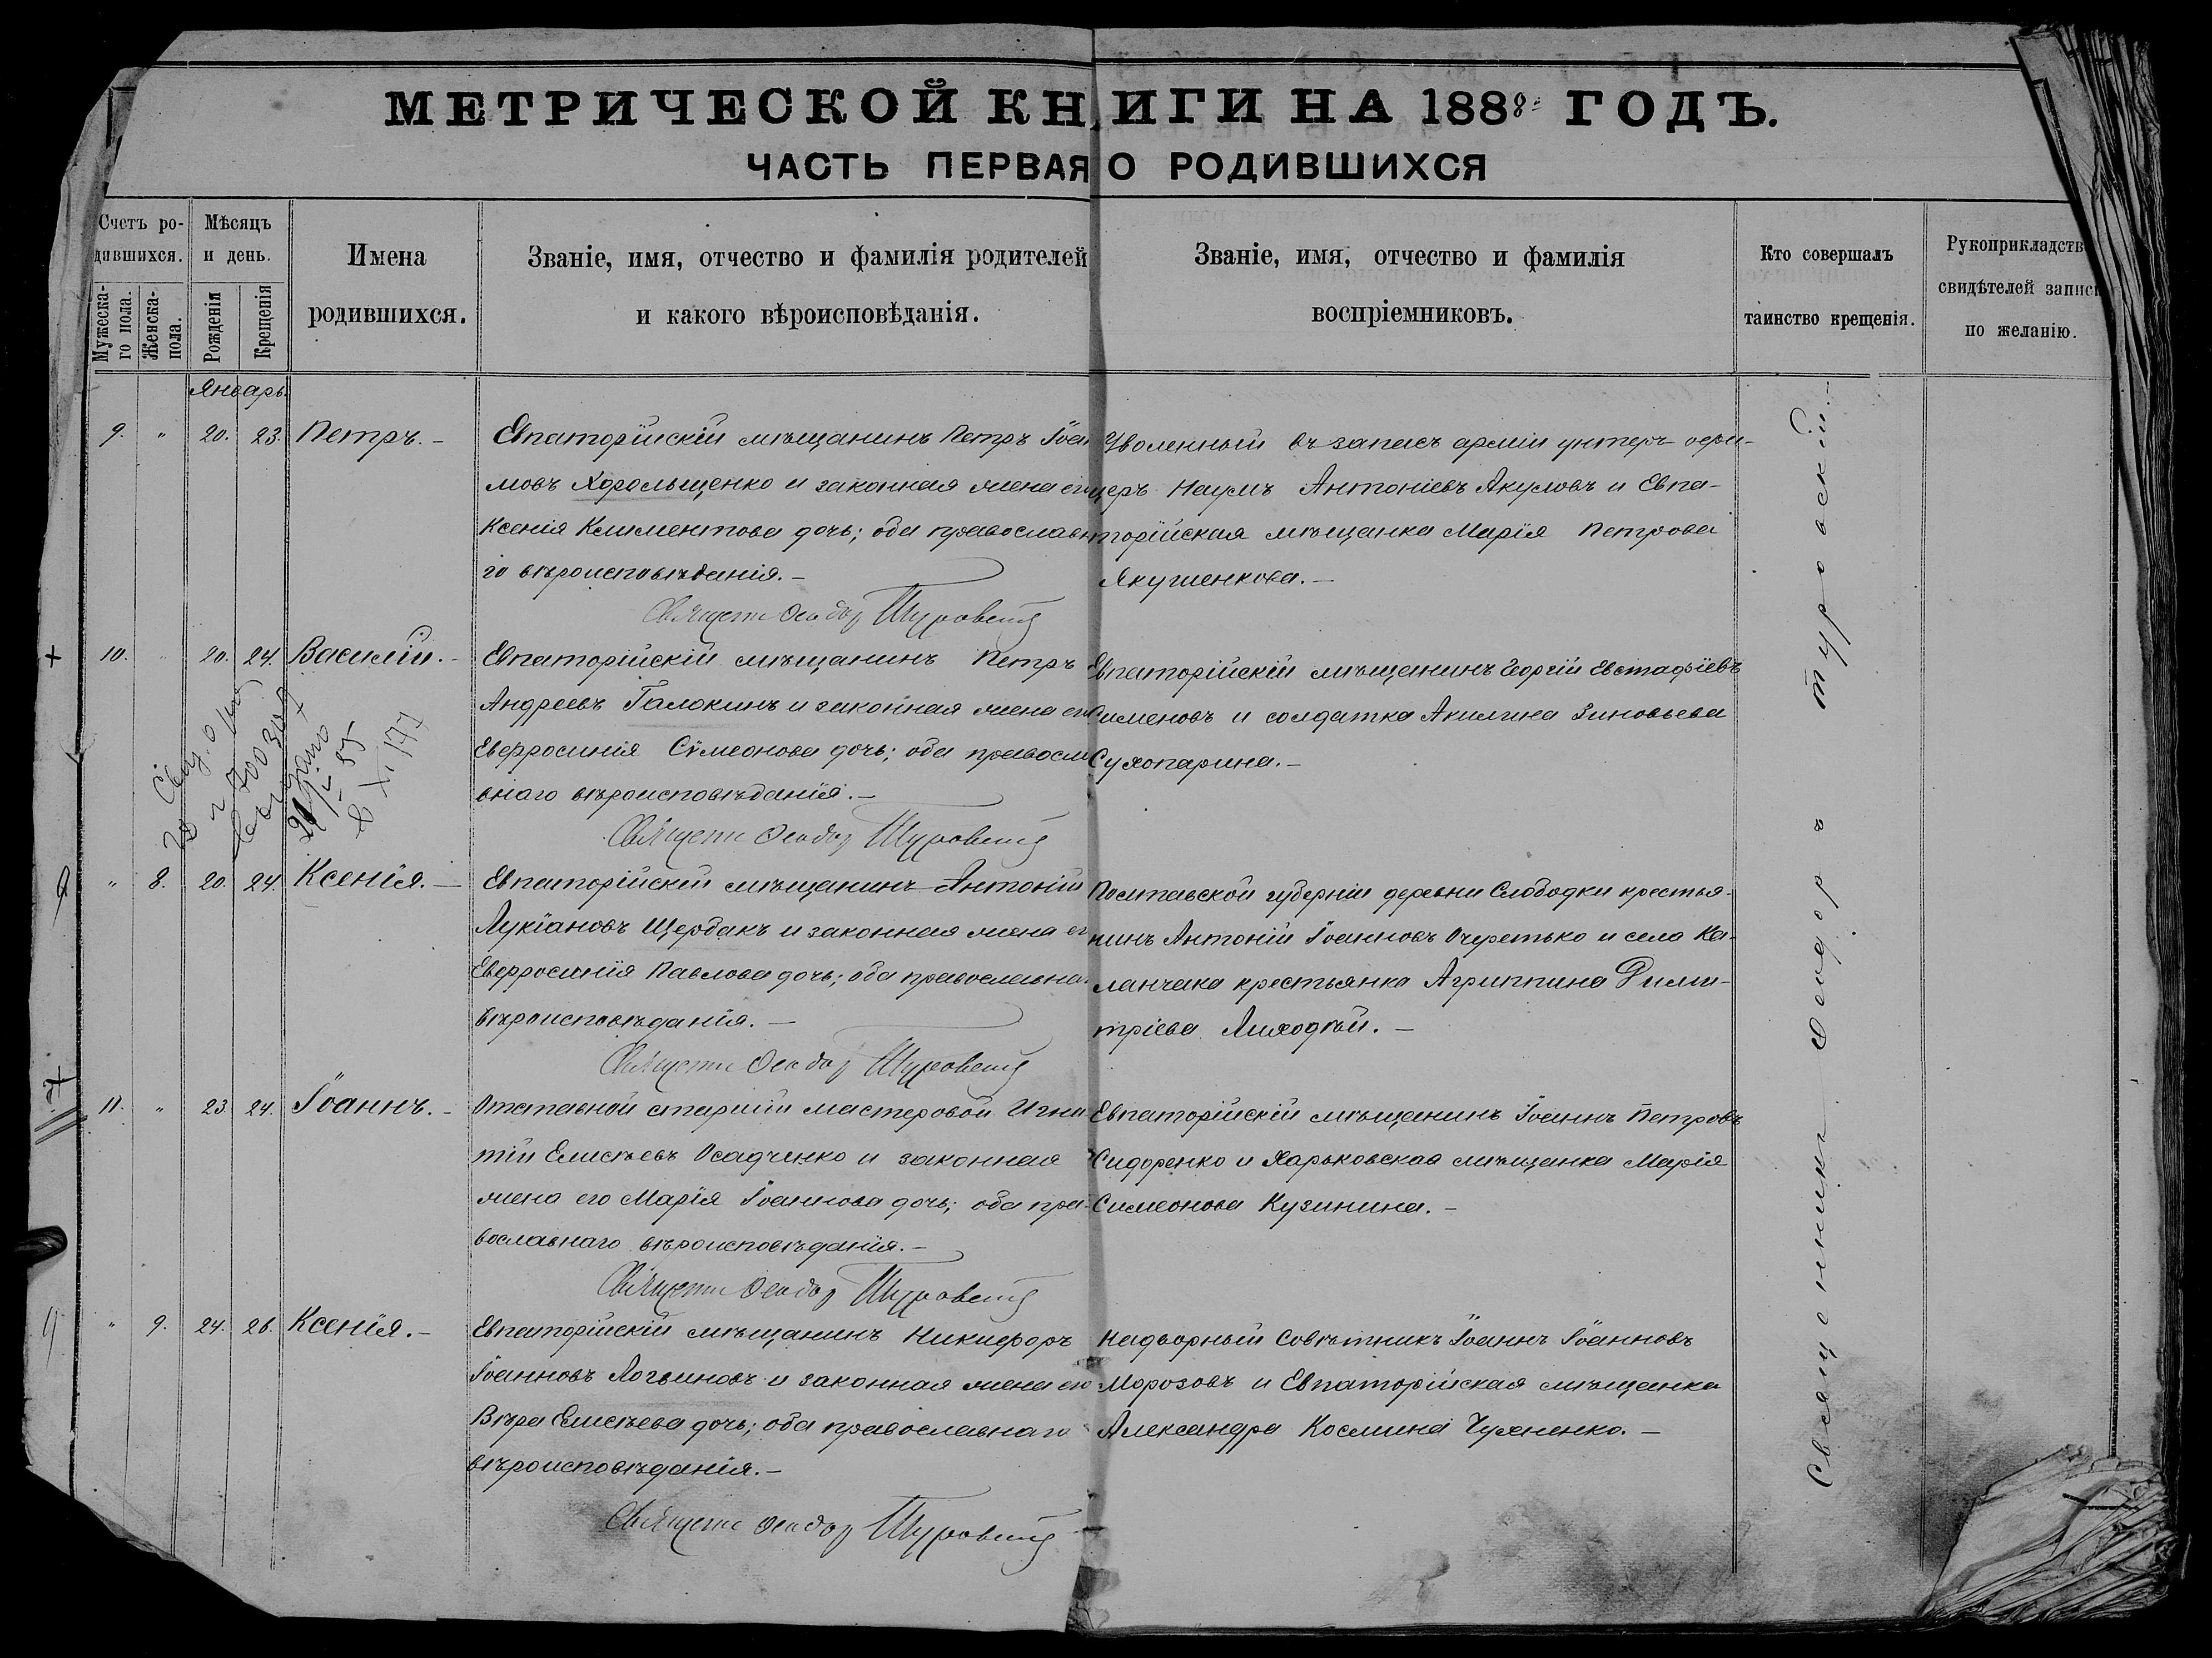 МЕТРИЧЕСКОЙ КНИГИ НА 1888 ГОДЪ.
ЧАСТЬ ПЕРВАЯ О РОДИВШИХСЯ
Счетъ ро-
дившихся.
Мужеска-
го пола.
Женска-
пола.
Мѣсяцъ
и день.
Рожденія
Крещенія
Имена
родившихся.
Званіе, имя, отчество и фамилія родителей
и какого вѣроисповѣданія.
Званіе, имя, отчество и фамилія
воспріемниковъ.
Кто совершалъ
таинство крещенія.
Рукоприкладств
свидѣтелей запис
по желанію.
Январь.
9. " 20. 23. Петръ. –
Евпаторійскій мѣщанинъ Петръ Іоа
мовъ Хорольщенко и законная жена ег
Ксенія Климентова дочь; оба православн
го вѣроисповѣданія. –
Священ Феодор Туровскій
Уволенный въ запасъ арміи унтеръ офи-
церъ Наумъ Антоніевъ Акуловъ и Евпа-
торійская мѣщанка Марія Петрова
Якушенкова. –
10. " 20. 24. Василій. –
Евпаторійскій мѣщанинъ Петръ
Андреевъ Галокинъ и законная жена его
Евфросинія Сѵмеонова дочь; оба правосла
внаго вѣроисповѣданія. –
Священ Феодор Туровскій
Евпаторійскій мѣщанинъ Георгій Евстафіевъ
Сименовъ и солдатка Акилина Зиновьева
Сухопарина. –
" 8. 20. 24. Ксенія. –
Евпаторійскій мѣщанинъ Антоній
Лукіановъ Щербакъ и законная жена ег
Евфросинія Павлова дочь; оба православна
вѣроисповѣданія. –
Священ Феодор Туровскій
Полтавской губерніи деревни Слободки крестья-
нинъ Антоній Іоанновъ Очеретько и села Ка-
ланчака крестьянка Агриппина Дими-
тріева Лиходѣй. –
11. " 23 24. Іоаннъ. –
Отставной старшій мастеровой Игна
тій Елисѣевъ Осадченко и законная
жена его Марія Іоаннова дочь; оба пра-
вославнаго вѣроисповѣданія. –
Священ Феодор Туровскій
Евпаторійскій мѣщанинъ Іоаннъ Петровъ
Сидоренко и Харьковская мѣщанка Марія
Симеонова Кузинина. –
" 9. 24. 26. Ксенія. –
Евпаторійскій мѣщанинъ Никифоръ
Іоанновъ Логвиновъ и законная жена его
Вѣра Елисѣева дочь; оба православнаго
вѣроисповѣданія. –
Священ Феодор Туровскій
Надворный Совѣтникъ Іоаннъ Іоанновъ
Морозовъ и Евпаторійская мѣщанка
Александра Космина Чухненко. –
Священникъ Феодоръ Туровскій. –